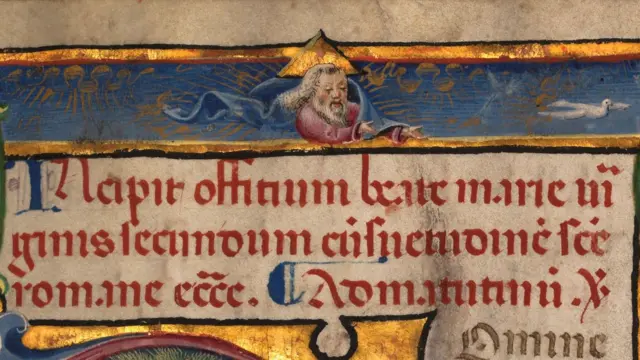 Incipit offitium beate marie uı̄
ginis secundum cōsuetudinē scē
romane eccē. ¶ Ad matutinū. X
Omine